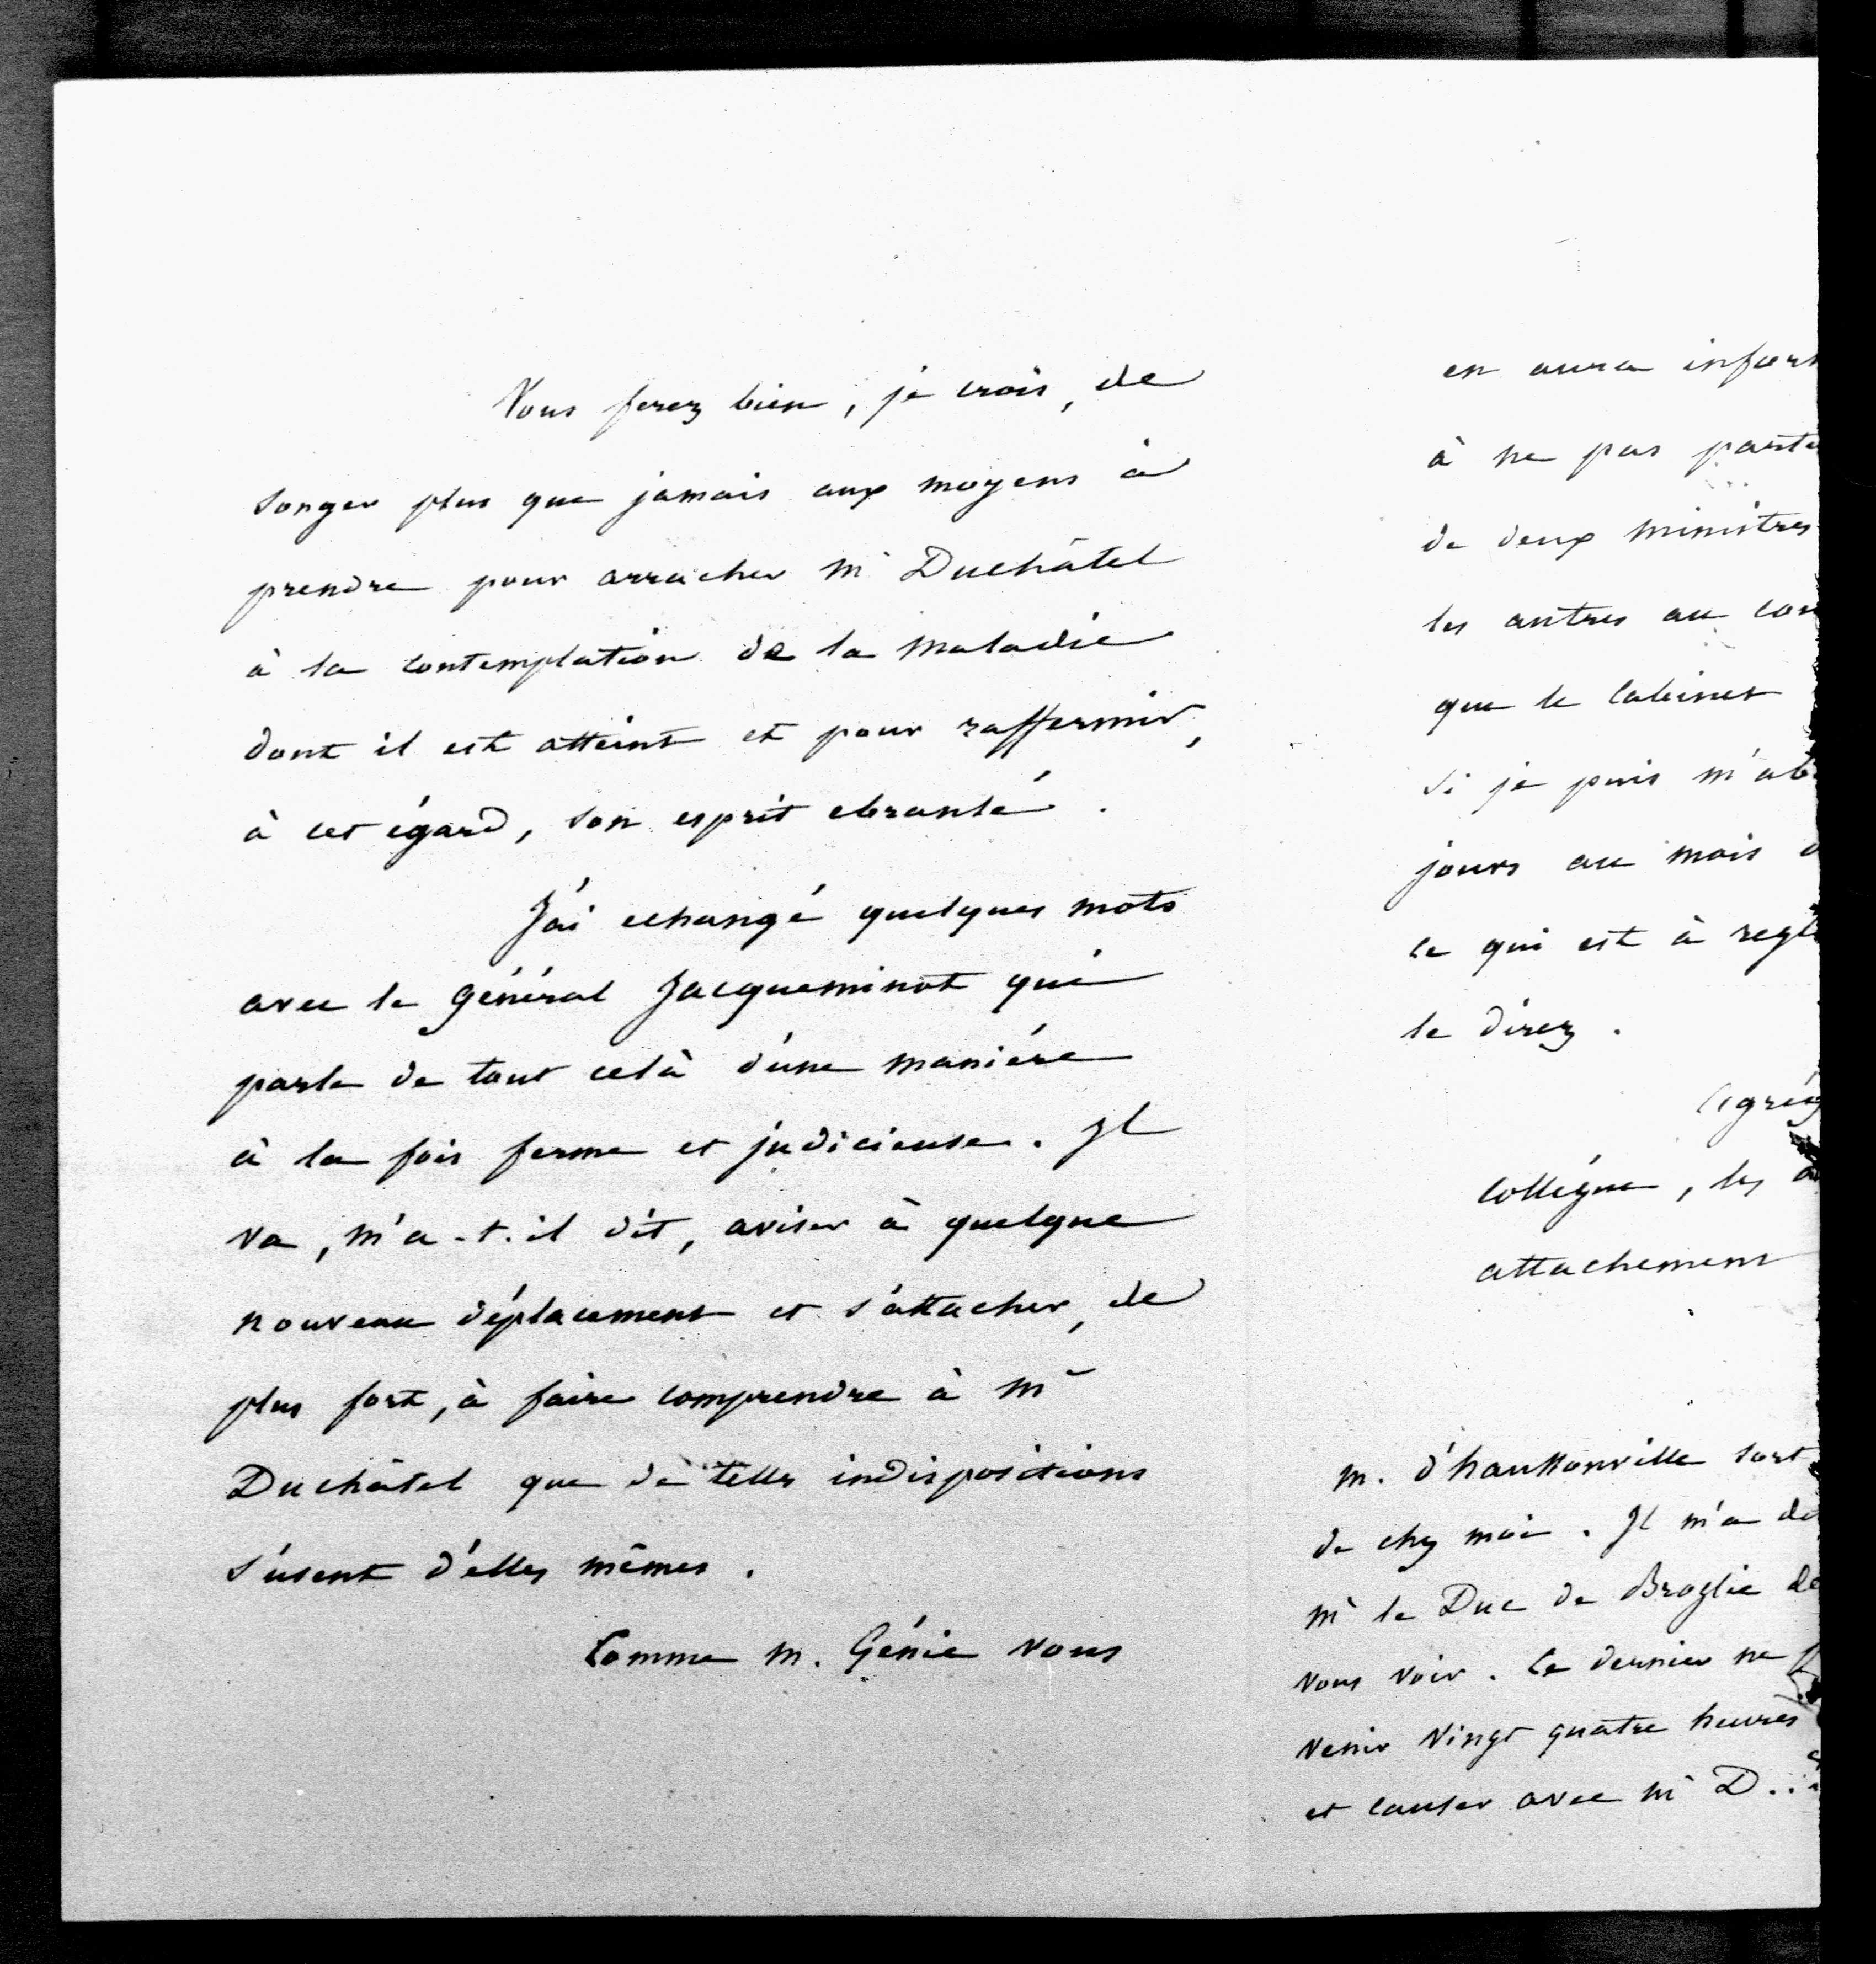 Vous ferez bien, je crois, de
songer plus que jamais aux moyens à
prendre pour arracher Mr Duchâtel
à la contemplation de la maladie
dont il est atteint et pour raffermir,
à cet égard, son esprit ebranlé.
J'ai echangé quelques mots
avec le Général Jacqueminot qui
parle de tout celà d'une maniére
à la fois ferme et judicieuse. Il
va, m'a-t-il dit, aviser à quelque
nouveau déplacement et s'attacher, de
plus fort, à faire comprendre à Mr
Duchâtel que de telles indispositions
s'usent d'elles mêmes.
Comme M. Génie vous
en aura
à ne pas
de deux ministres
les autres au
que le Cabinet
Si je puis
jours au mois
ce qui est à
le direz.
collégue, les
attachement
M. d'haussonville sort
de chez moi. Il m'a
Mr le Duc de Broglie
vous voir. Ce dernier ne
venir vingt quatre heures
et causer avec Mr D..